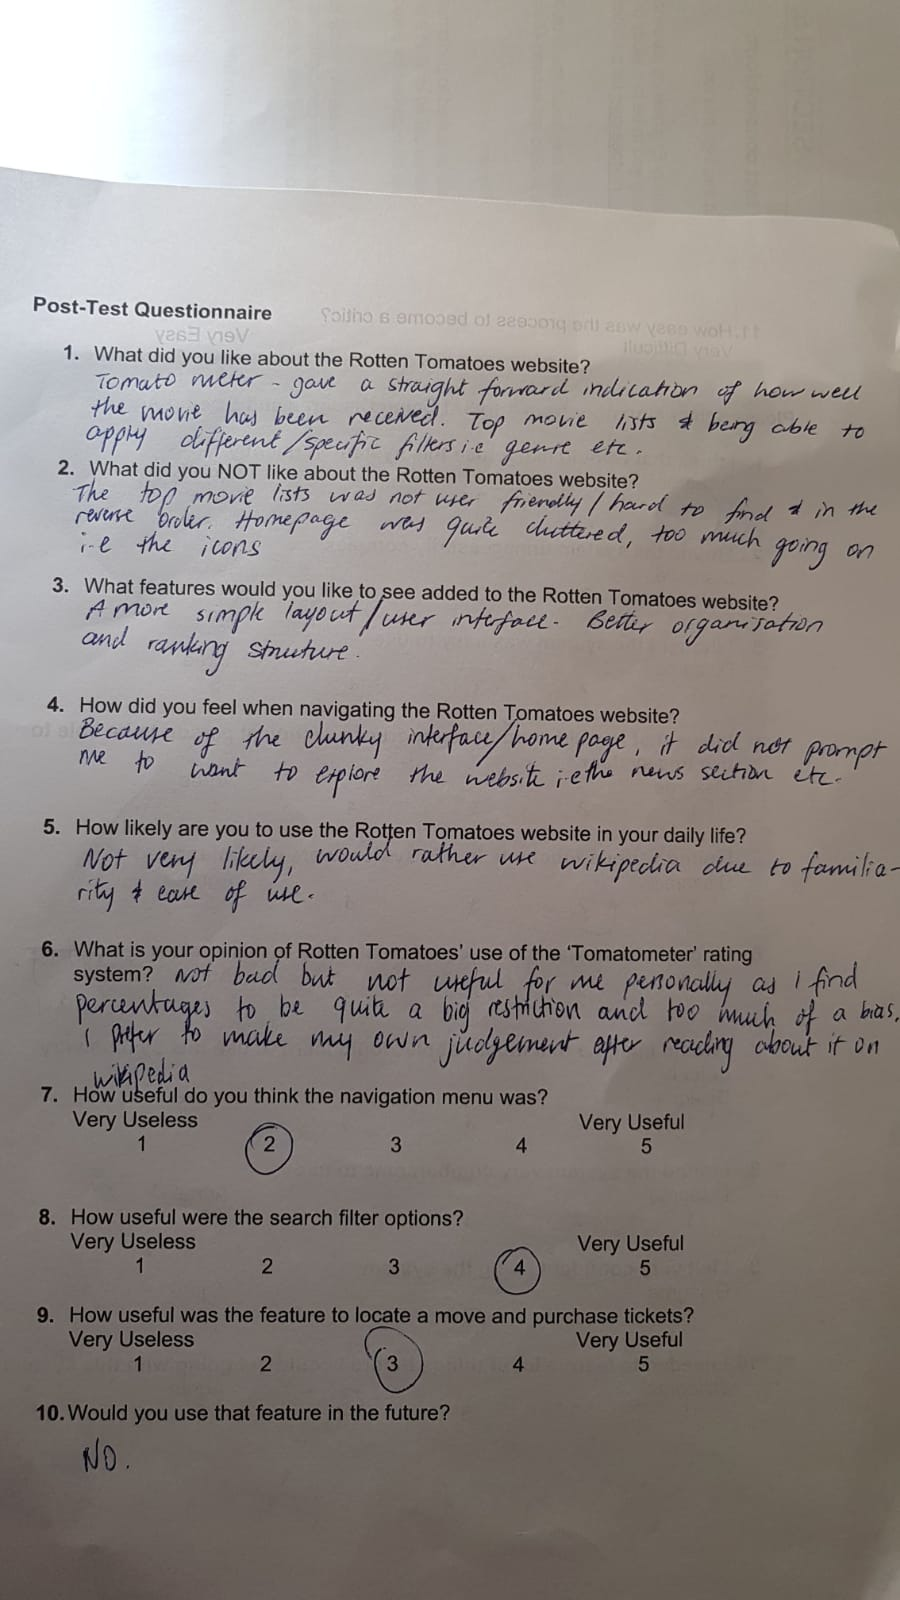 Post-Test Questionnaire
11. How easy was the process to become a critic?
Very Difficult Very Easy
1. What did you like about the Rotten Tomatoes website?
Tomato meter - gave a straight forward indication of how well
the movie has been received. Top movie lists & being able to
apply different/specific filters i.e genre etc.
2. What did you NOT like about the Rotten Tomatoes website?
The top movie lists was not user friendly / hard to find & in the
reverse order. Homepage was quite cluttered, too much going on
i-e the icons
3. What features would you like to see added to the Rotten Tomatoes website?
A more simple layout/user interface. Better organisation
and ranking structure.
4. How did you feel when navigating the Rotten Tomatoes website?
Because of the clunky interface/home page, it did not prompt
me to want to explore the website i-e the news section etc.
5. How likely are you to use the Rotten Tomatoes website in your daily life?
Not very likely, would rather use wikipedia due to familia-
rity & ease of use.
6. What is your opinion of Rotten Tomatoes' use of the 'Tomatometer' rating
system? Not bad but not useful for me personally as I find
percentages to be quite a big restriction and too much of a bias.
I prefer to make my own judgement after reading about it on
wikipedia
7. How useful do you think the navigation menu was?
Very Useless Very Useful
1 2 3 4 5
8. How useful were the search filter options?
Very Useless Very Useful
1 2 3 4 5
9. How useful was the feature to locate a move and purchase tickets?
Very Useless Very Useful
1 2 3 4 5
10. Would you use that feature in the future?
NO.